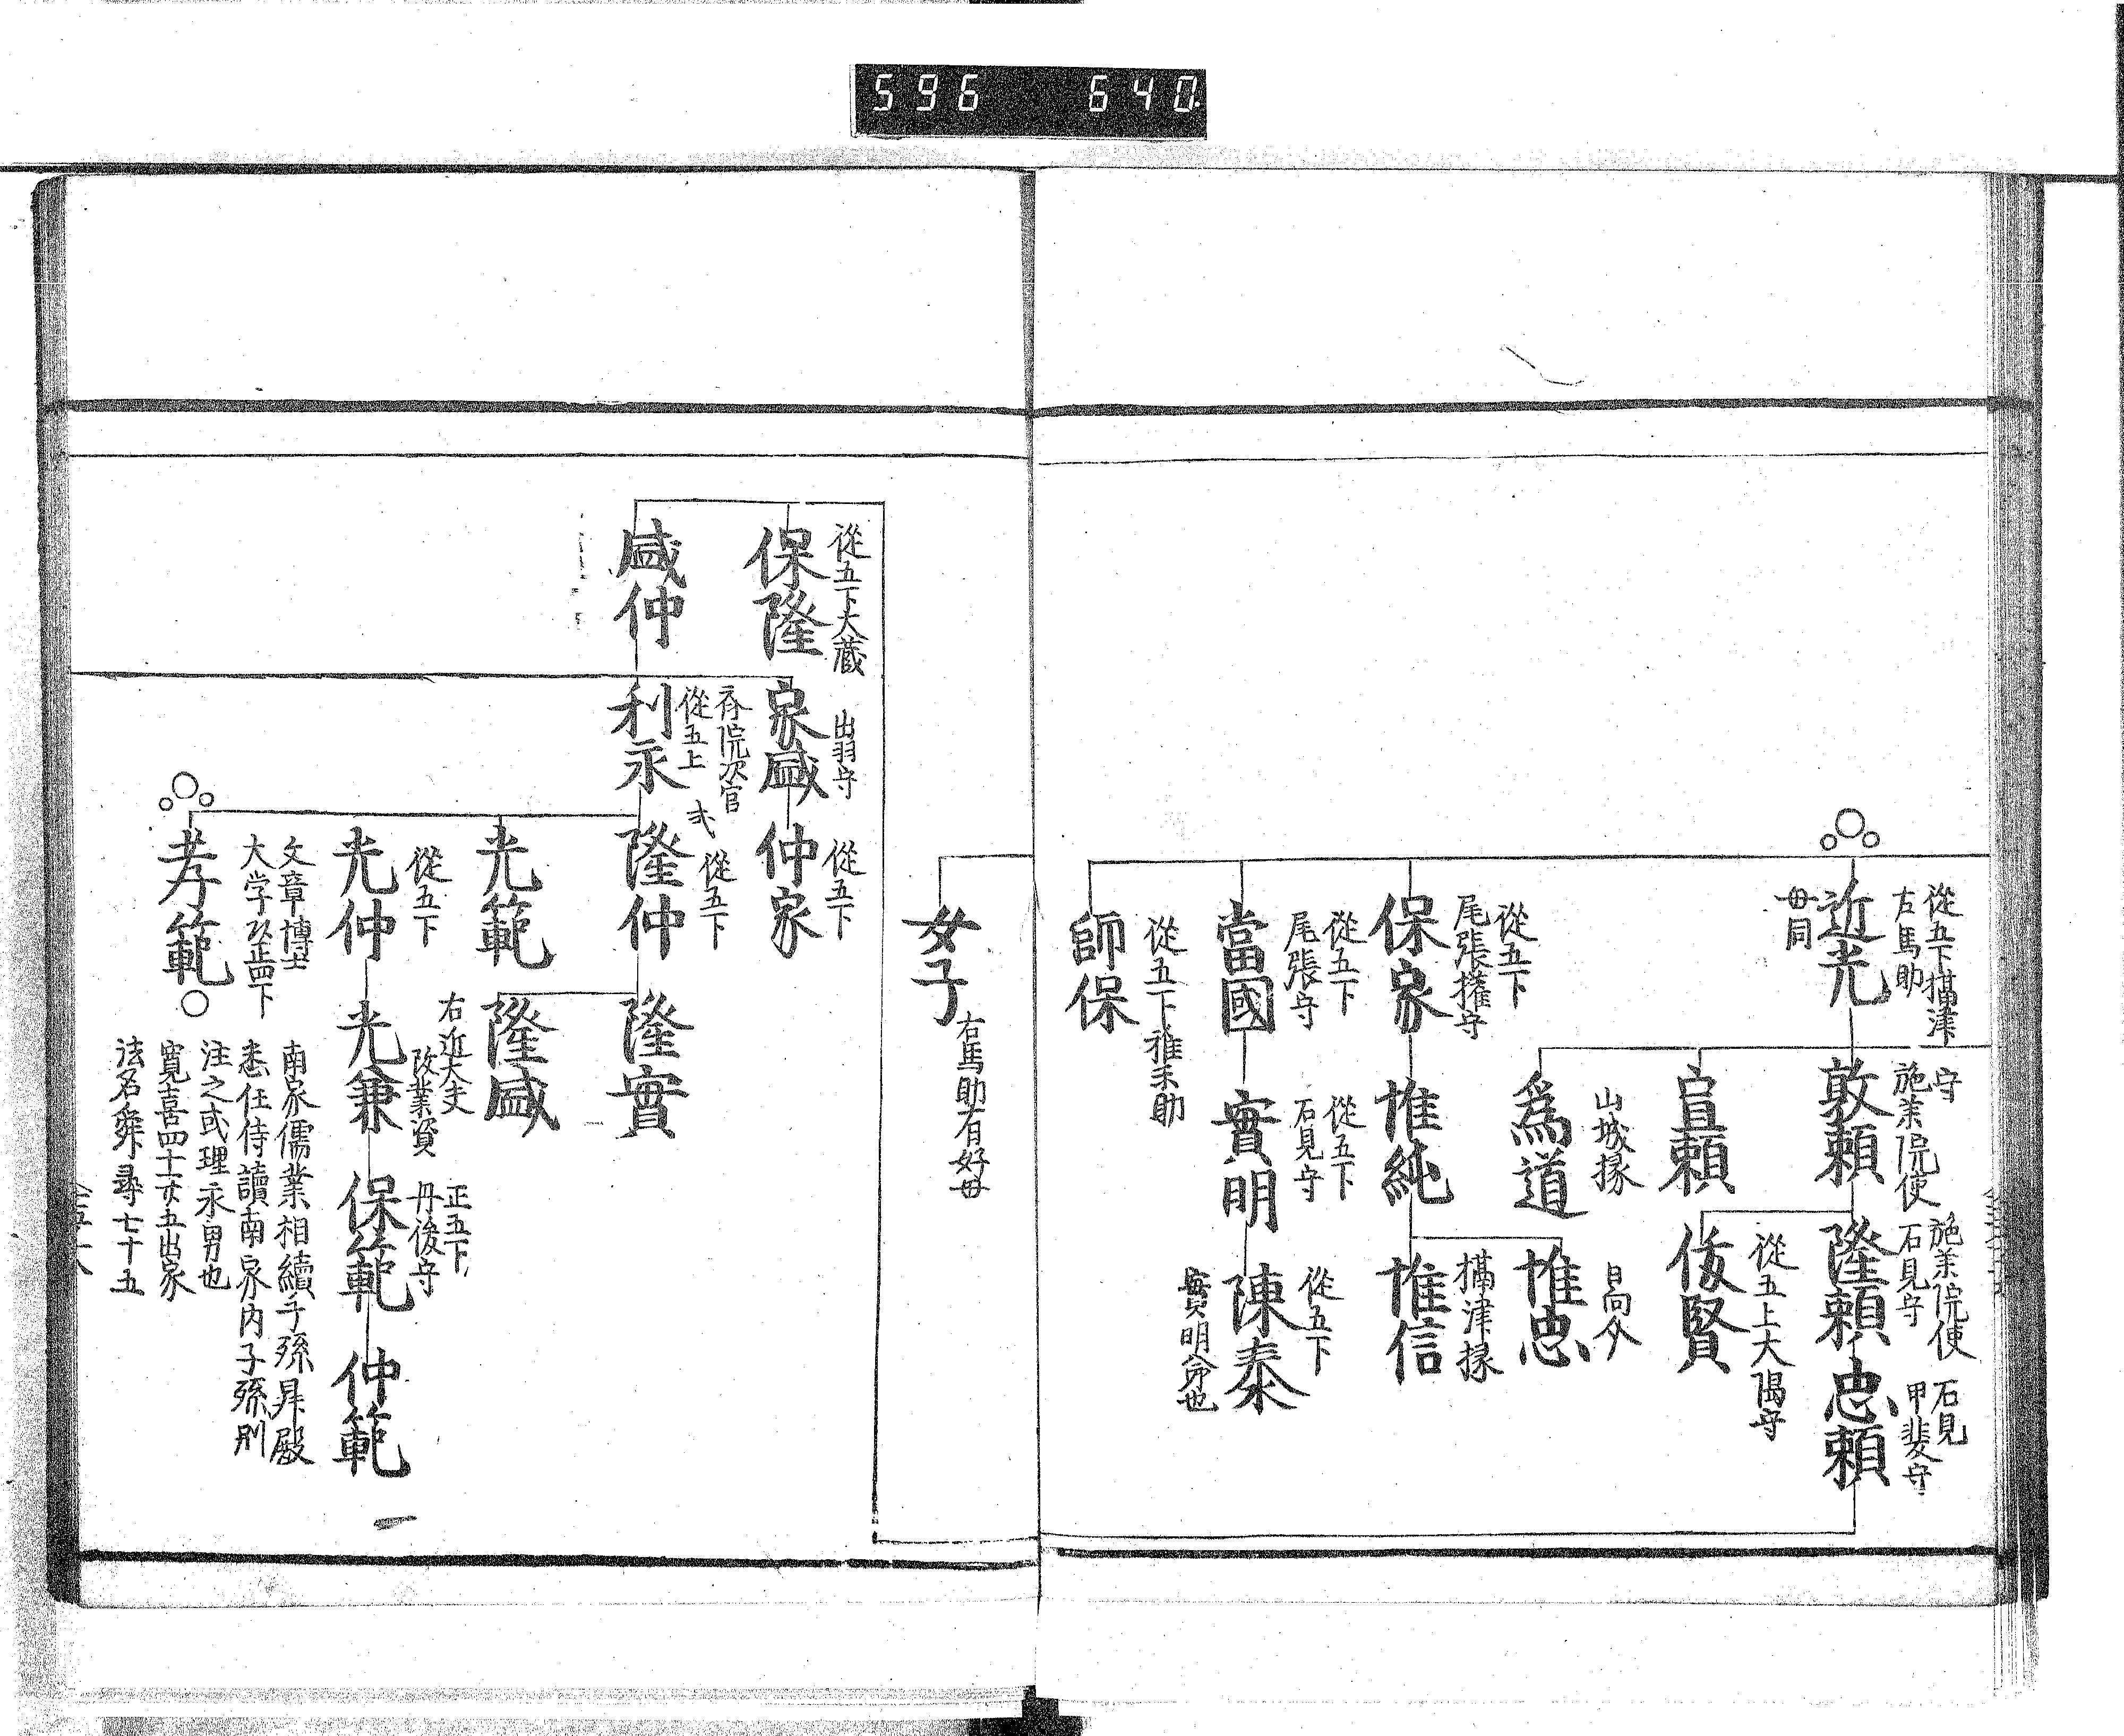 596 640
從五下攝津
右馬助
近光
母同
守
施薬院使
敦頼
施薬院使
石見守
隆頼
石見
甲斐守
忠頼
從五上大隅守
俊賢
直頼
山城掾
為道
從五下
尾張權守
保家
惟純
日向介
惟忠
攝津掾
惟信
從五下
尾張守
當國
從五下
石見守
實明
從五下
陳泰
實明弟也
從五下雅樂助
師保
女子
右馬助有好母
從五下大蔵
保隆
出羽守
家盛
從五下
仲家
盛仲
斎院次官
從五上
利永
弐
從五下
隆仲
隆實
隆盛
光範
從五下
光仲
右近大夫
改業資
光兼
正五下
丹後守
保範
仲範
文章博士
大学頭正四下
孝範
南家儒業相續子孫昇殿
悉任侍讀南家内子孫別
注之或理永男也
寛喜四十一廿五出家
法名舜尋七十五